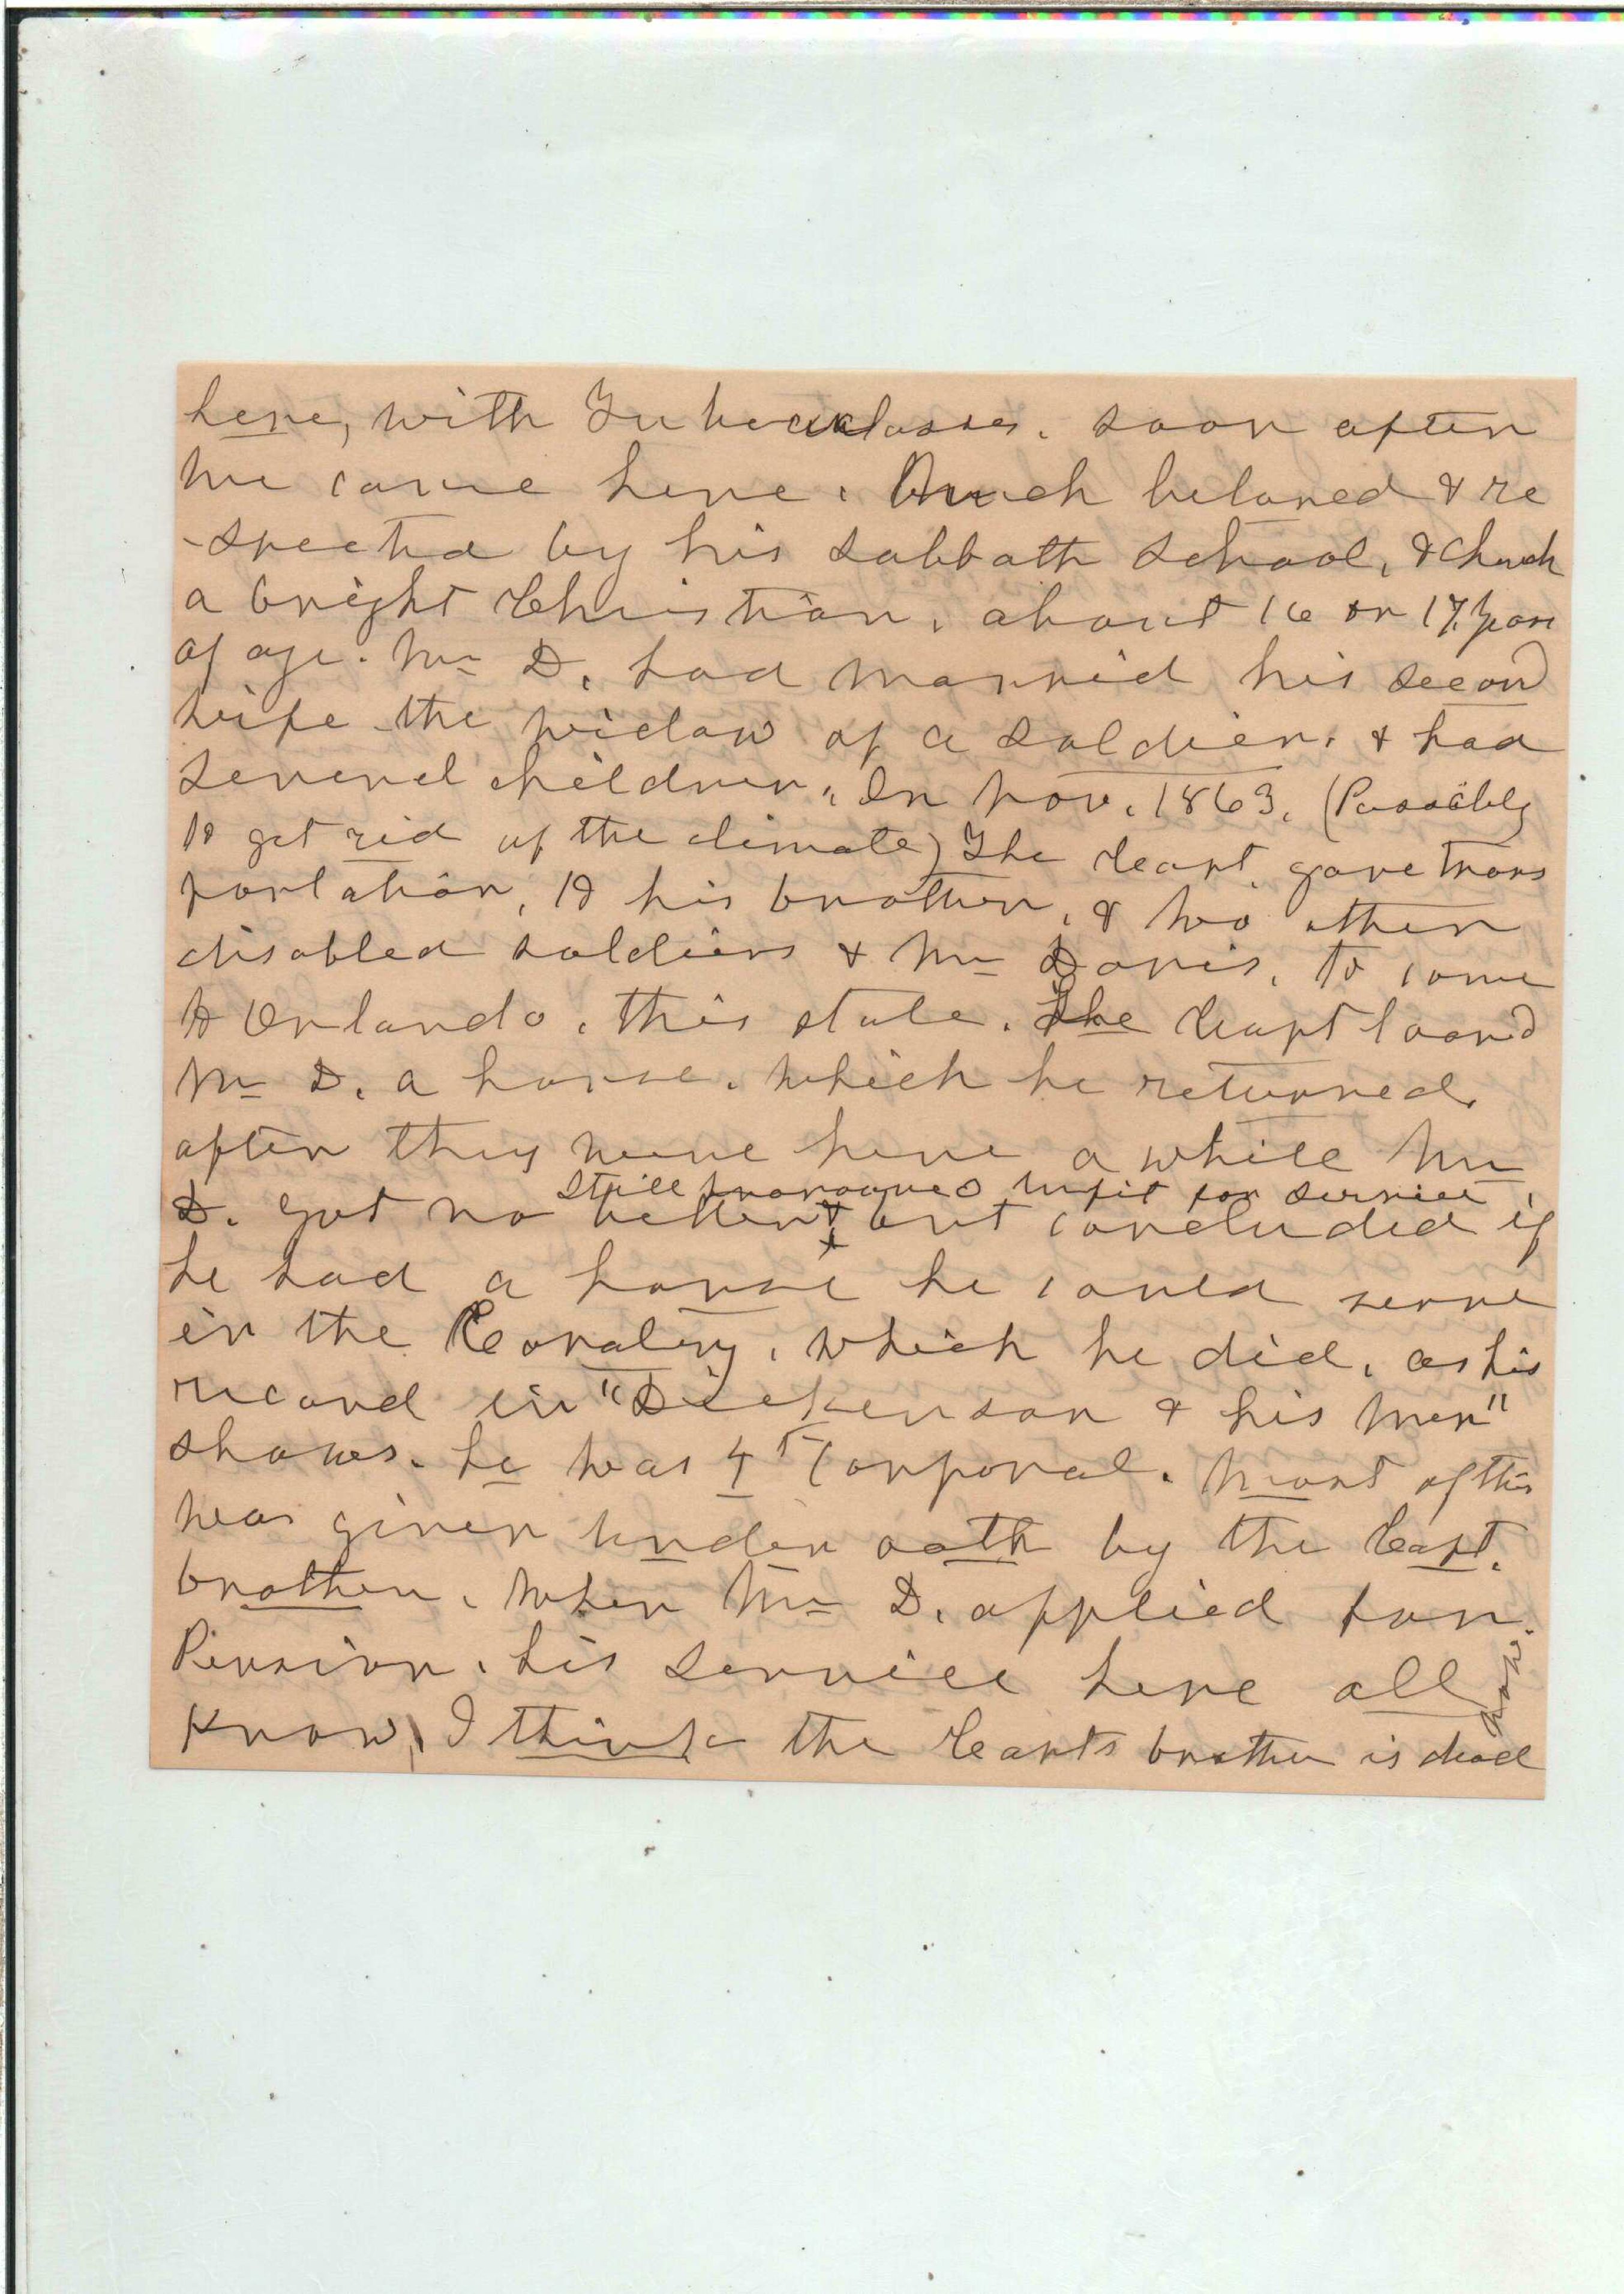 here, with Tuberculosses. soon after
we came here. Much beloved & re
-spected by his sabbath school, & church
a bright Christian. about 16 or 17 years
of age. Mr D. had married his second
wife the widow of a soldier. & had
several children. In Nov. 1863. (Possibly
to get rid of the climate) The Capt. gave trans
portation, to his brother, & two other
disabled soldiers & Mr Davis, to come
to Orlando. this state. The Capt loaned
Mr D. a horse. which he returned.
after they were here a while Mr
still pronounced unfit for service,
D. got no better & but concluded if
he had a horse he could serve
in the Cavalry, which he did, as his
record in "Dickenson & his Men"
shows. he was 4th Corporal. Most of this
was given under oath by the Capt.
brother. when Mr D. applied for
Pension. his service here all
know, I think the Capts brother is dead
now.